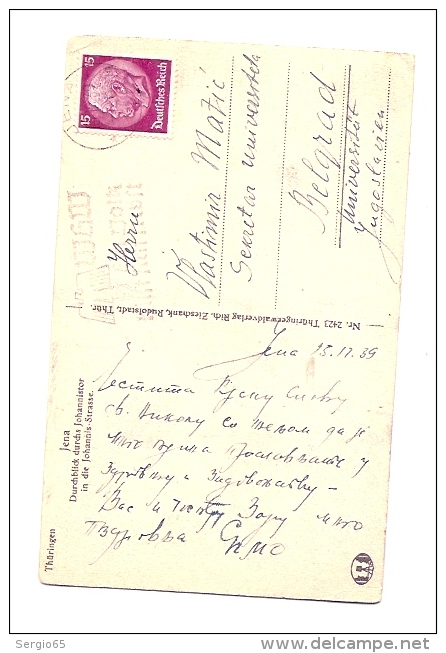 15
15
Deutsches Reich
Herrn
Vlastimir Matić
Sekretar Universiteta
Belgrad
Universität
Jugoslavien
Nr. 2423 Thüringerwaldverlag Rich. Zieschank, Rudolstadt, Thür.
Thüringen
Jena
Durchblick durchs Johannistor
in die Johannis-Strasse.
Jena 15.12.39
Честита Крсну Славу
св. Николу са жељом да је
много година прослављате у
здрављу и задовољству –
Вас и Зору много
поздравља
Sergio65